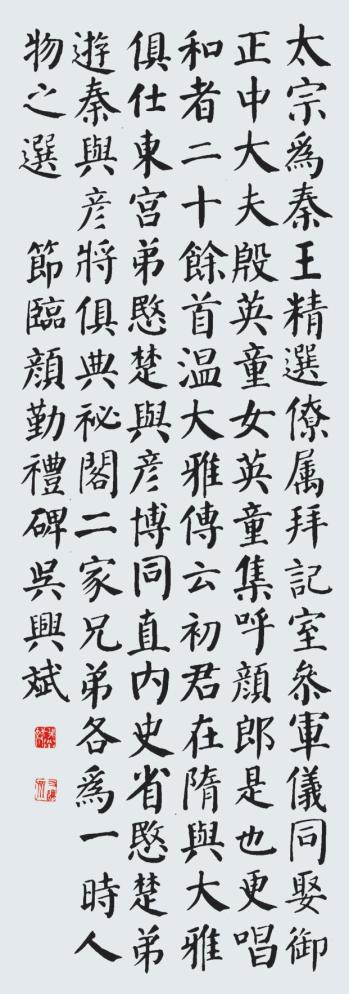 太宗為秦王精選僚属拜記室參軍儀同娶御
正中大夫殷英童女英童集呼顔郎是也更唱
和者二十餘首温大雅傳云初君在隋與大雅
俱仕東宫弟愍楚與彦博同直内史省愍楚弟
遊秦與彦將俱典祕閣二家兄弟各為一時人
物之選　節臨顔勤禮碑吳興斌